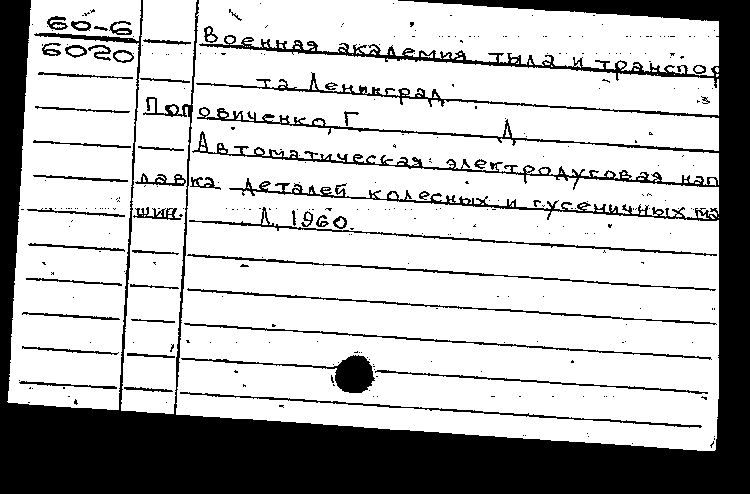 60-6
6020
Военная академия тыла и транспор
та Ленинград
Поповиченко, Г. Д
Автоматическая электродуговая нап
лавка деталей колесных и гусеничных ма
шин. Л., 1960.